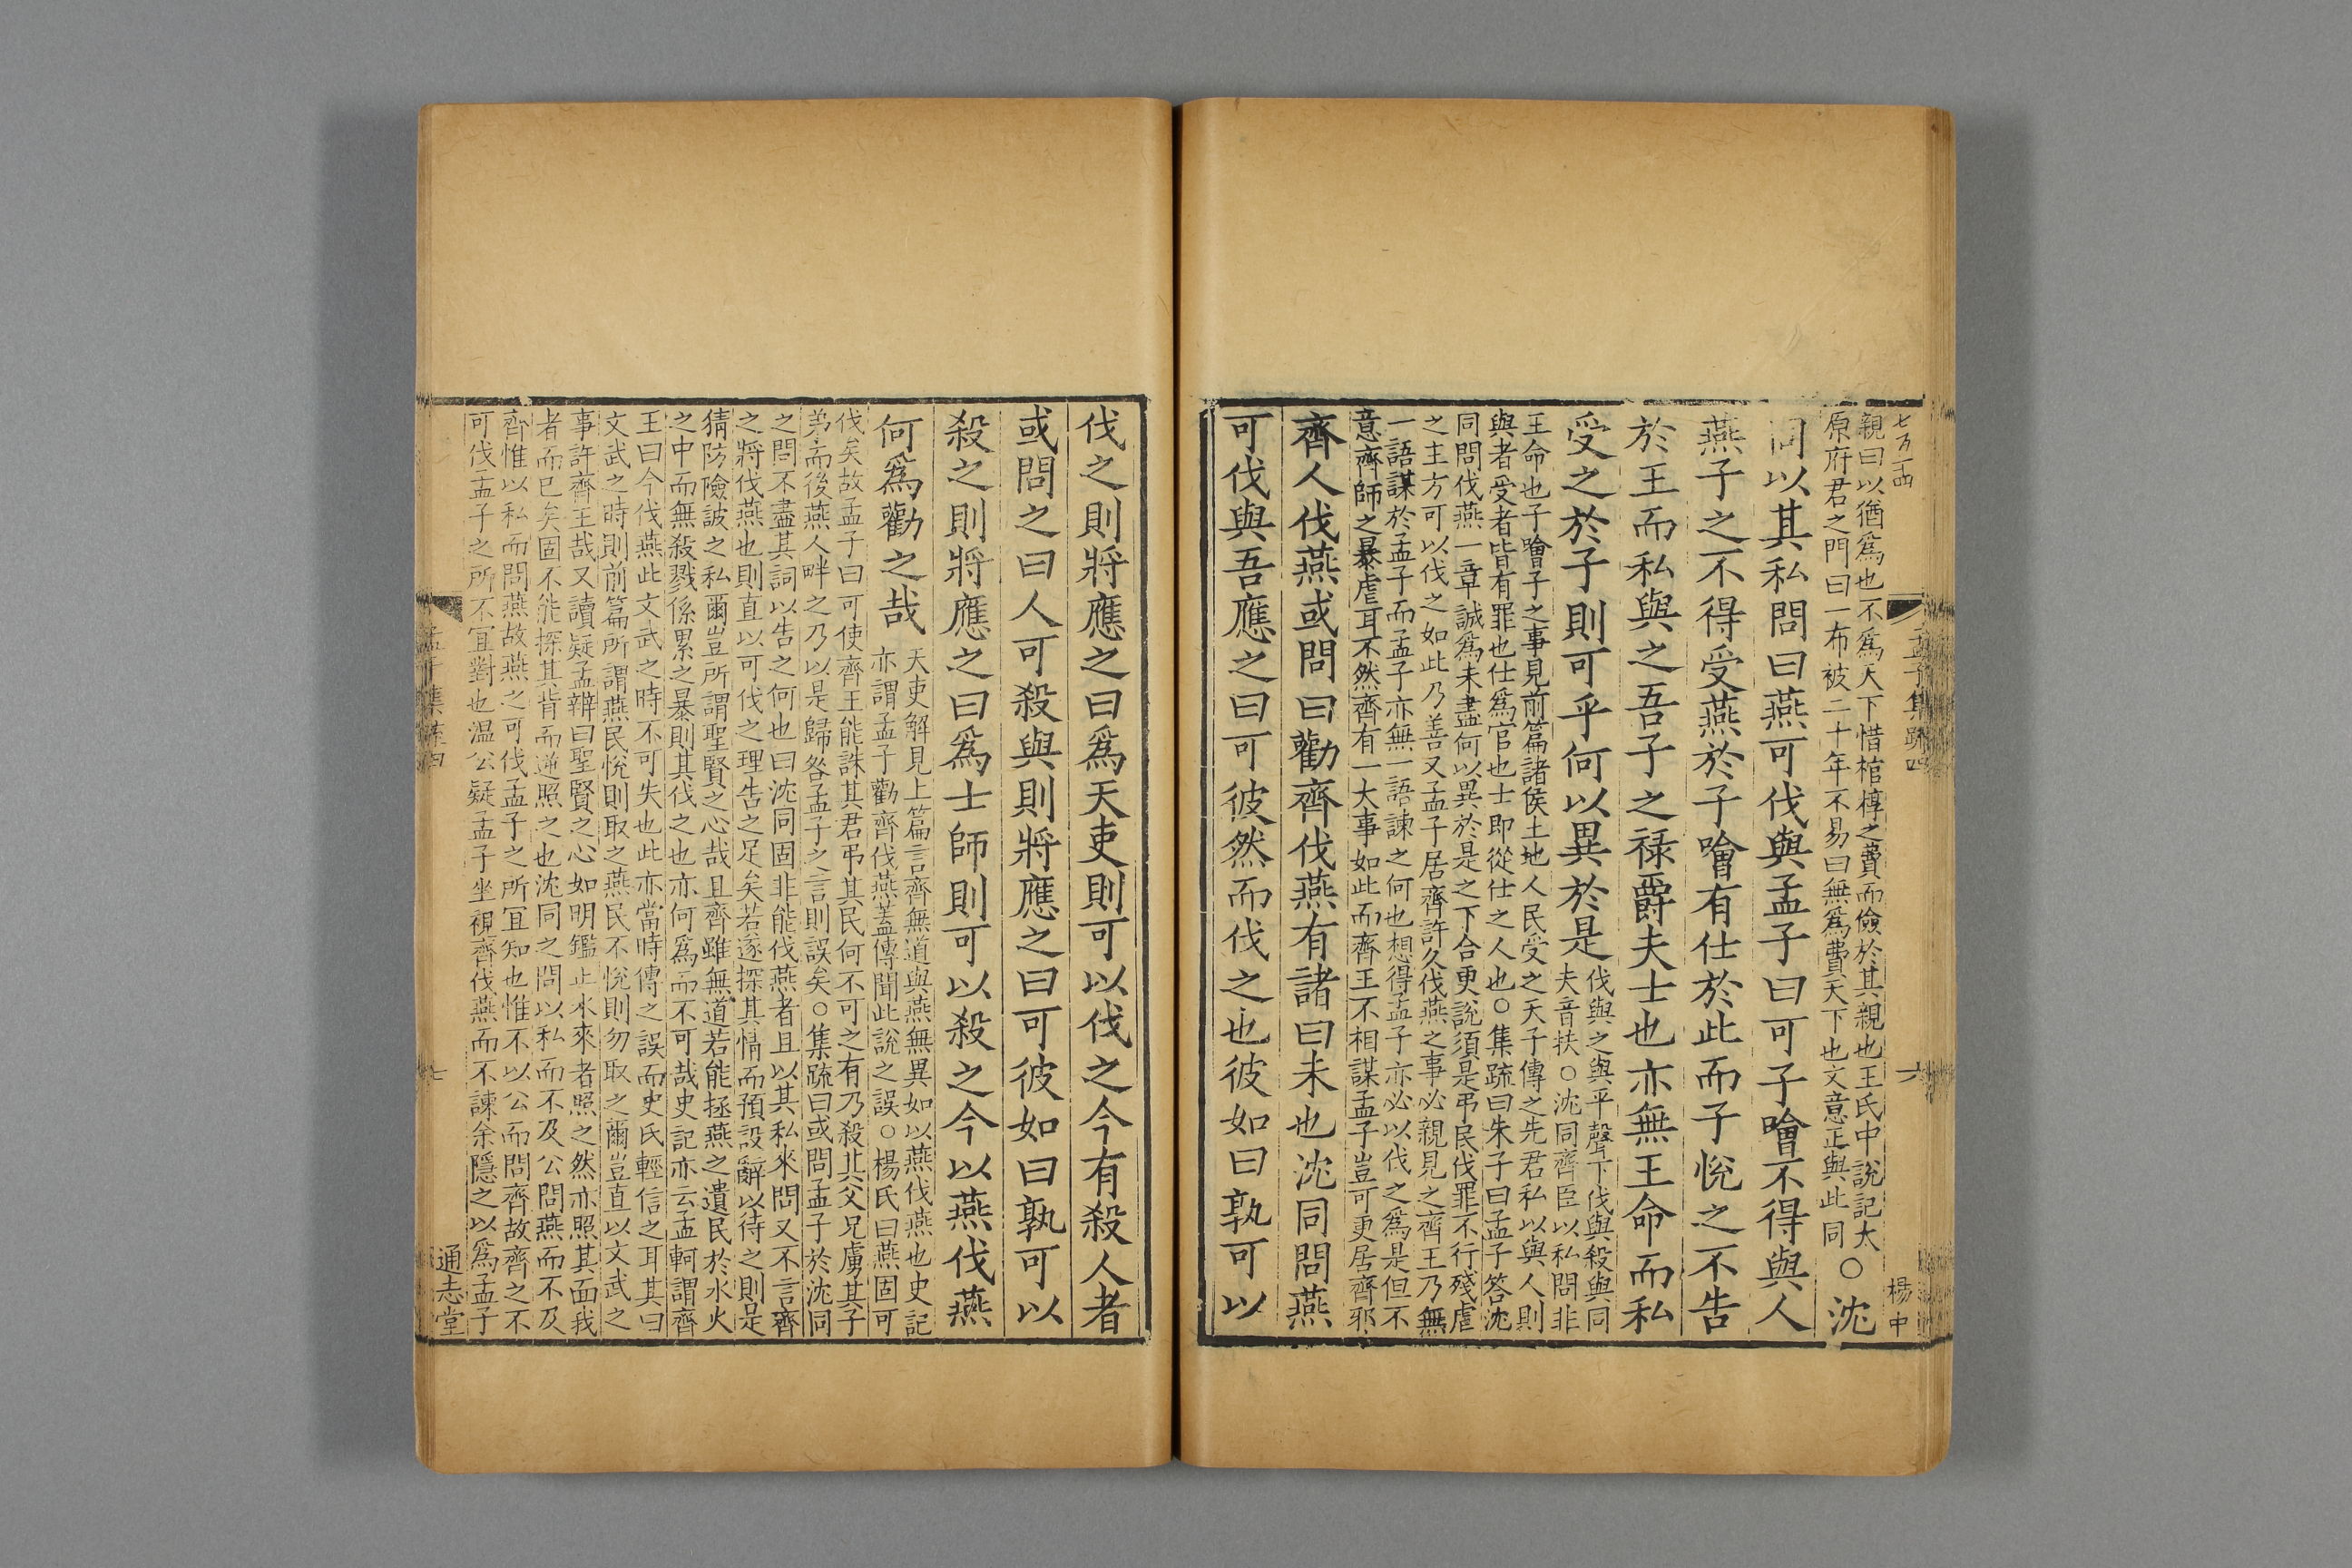 七百二四
孟子集疏四
六
楊中
親曰以猶爲也不爲天下惜棺椁之費而儉於其親也王氏中說記太
原府君之門曰一布被二十年不易曰無爲費天下也文意正與此同
○沈
同以其私問曰燕可伐與孟子曰可子噲不得與人
燕子之不得受燕於子噲有仕於此而子悅之不告
於王而私與之吾子之祿爵夫士也亦無王命而私
受之於子則可乎何以異於是
伐與之與平聲下伐與殺與同
夫音扶○沈同齊臣以私問非
王命也子噲子之事見前篇諸侯土地人民受之天子傳之先君私以與人則
與者受者皆有罪也仕爲官也士即從仕之人也○集疏曰朱子曰孟子答沈
同問伐燕一章誠爲未盡何以異於是之下合更說須是弔民伐罪不行殘虐
之主方可以伐之如此乃善又孟子居齊許久伐燕之事必親見之齊王乃無
一語謀於孟子而孟子亦無一語諫之何也想得孟子亦必以伐之爲是但不
意齊師之暴虐耳不然齊有一大事如此而齊王不相謀孟子豈可更居齊邪
齊人伐燕或問曰勸齊伐燕有諸曰未也沈同問燕
可伐與吾應之曰可彼然而伐之也彼如曰孰可以
伐之則將應之曰爲天吏則可以伐之今有殺人者
或問之曰人可殺與則將應之曰可彼如曰孰可以
殺之則將應之曰爲士師則可以殺之今以燕伐燕
何爲勸之哉
天吏解見上篇言齊無道與燕無異如以燕伐燕也史記
亦謂孟子勸齊伐燕蓋傳聞此說之誤○楊氏曰燕固可
伐矣故孟子曰可使齊王能誅其君弔其民何不可之有乃殺其父兄虜其子
弟而後燕人畔之乃以是歸咎孟子之言則誤矣○集疏曰或問孟子於沈同
之問不盡其詞以告之何也曰沈同固非能伐燕者且以其私來問又不言齊
之將伐燕也則直以可伐之理告之足矣若逐探其情而預設辭以待之則是
猜防險詖之私爾豈所謂聖賢之心哉且齊雖無道若能拯燕之遺民於水火
之中而無殺戮係累之暴則其伐之也亦何爲而不可哉史記亦云孟軻謂齊
王曰今伐燕此文武之時不可失也此亦當時傳之誤而史氏輕信之耳其曰
文武之時則前篇所謂燕民悅則取之燕民不悅則勿取之爾豈直以文武之
事許齊王哉又讀疑孟辨曰聖賢之心如明鑑止水來者照之然亦照其面我
者而已矣固不能探其背而逆照之也沈同之問以私而不及公問燕而不及
齊惟以私而問燕故燕之可伐孟子之所宜知也惟不以公而問齊故齊之不
可伐孟子之所不宜對也温公疑孟子坐視齊伐燕而不諫余隱之以爲孟子
孟子集疏四
七
通志堂